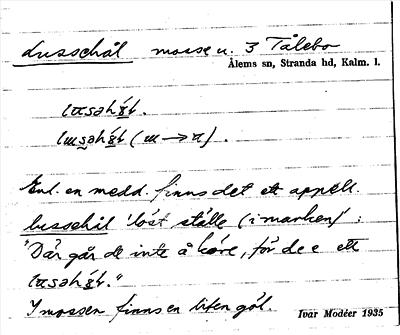 Lusschål mosse u. 3 Tålebo
Ålems sn, Stranda hd, Kalm. l.
Enl. en medd. finns det ett appell.
lusschål 'löst ställe (i marken)':
"Där går de inte å köre, för de e ett
I mossen finns en liten göl.
Ivar Modéer 1935